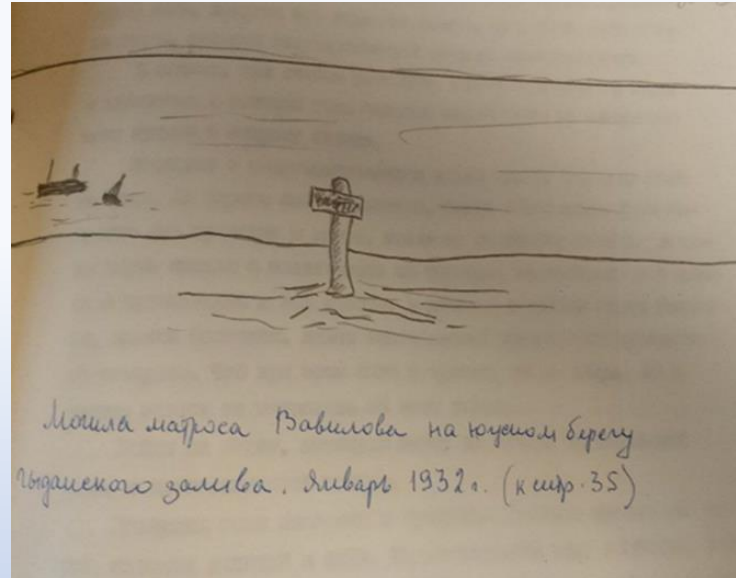 Могила матроса Вавилова на южном берегу
Гыданского залива. Январь 1932 г. (к стр. 35)